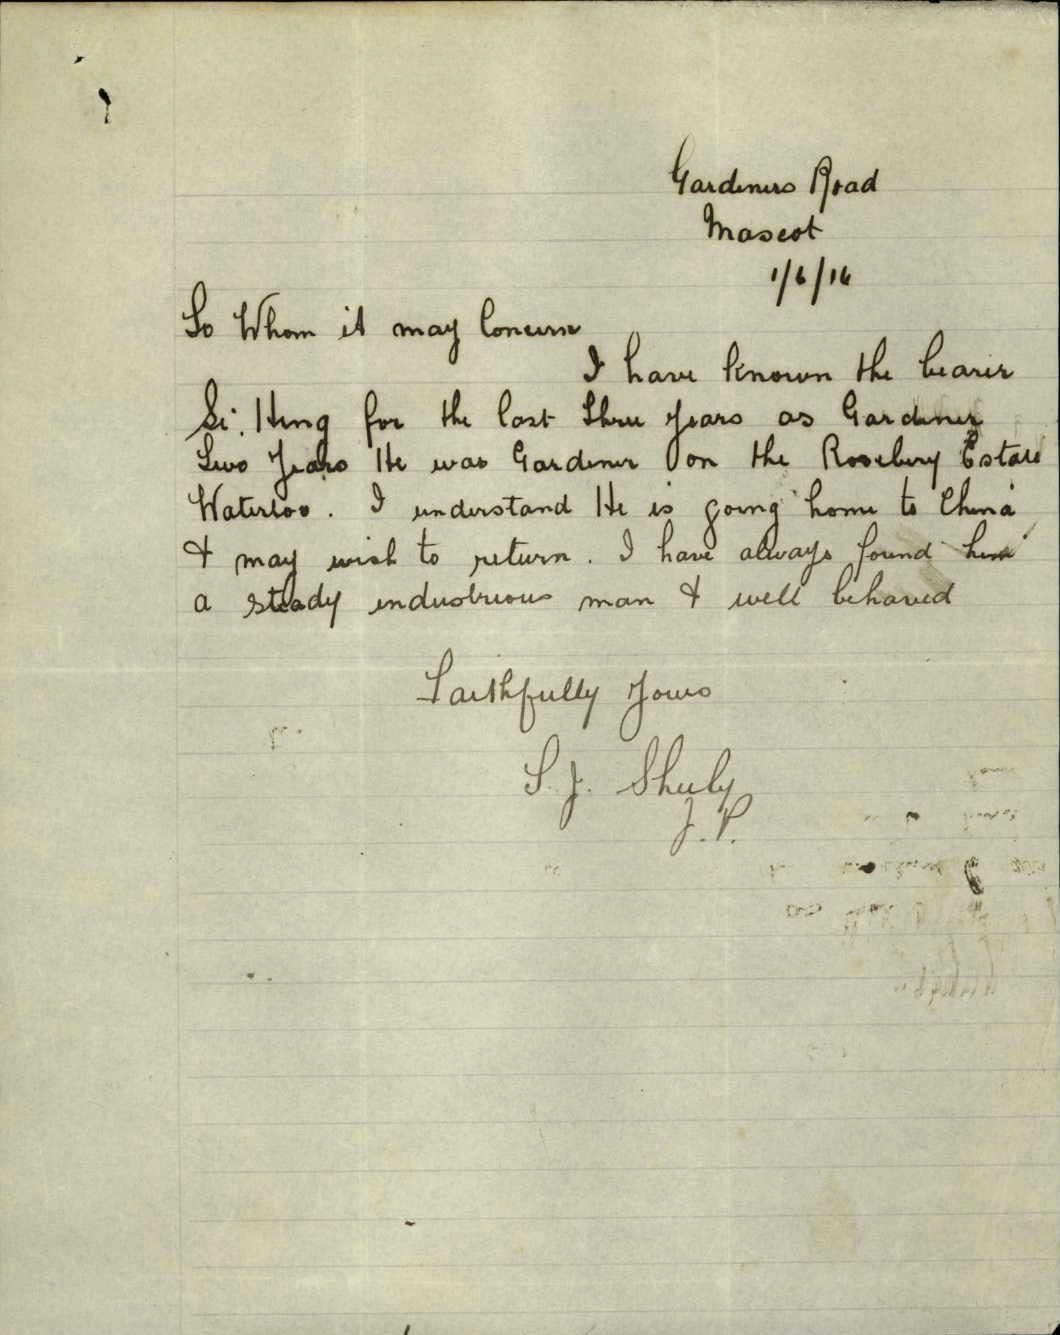 Gardeners Road
Mascot
1/6/16
To Whom it may Concern
I have known the bearer
Si. Hing for the last three years as Gardener
Two Years He was Gardener on the Rosebery Estate
Waterloo. I understand He is going home to China
& may wish to return. I have always found him
a steady industrious man & well behaved
Faithfully Yours
S. J.
J.P.